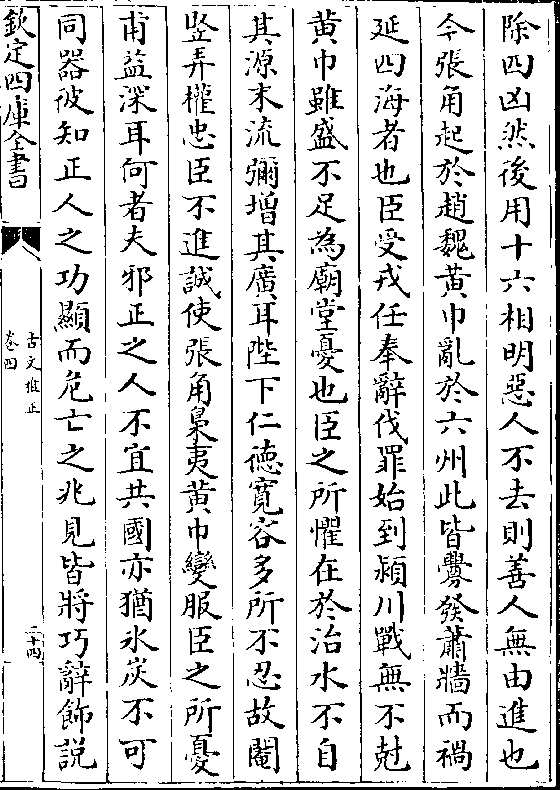 除四凶然後用十六相明惡人不去則善人無由進也
今張角起於趙魏黃巾亂於六州此皆釁發蕭牆而禍
延四海者也臣受戎任奉辭伐罪始到潁川戰無不尅
黃巾雖盛不足為廟堂憂也臣之所懼在於治水不自
其源末流彌增其廣耳陛下仁德寛容多所不忍故閹
竪弄權忠臣不進誠使張角梟夷黃巾變服臣之所憂
甫益深耳何者夫邪正之人不宜共國亦猶氷炭不可
同器彼知正人之功顯而危亡之兆見皆將巧辭飾説
欽定四庫全書
古文雅正
卷四
二十四